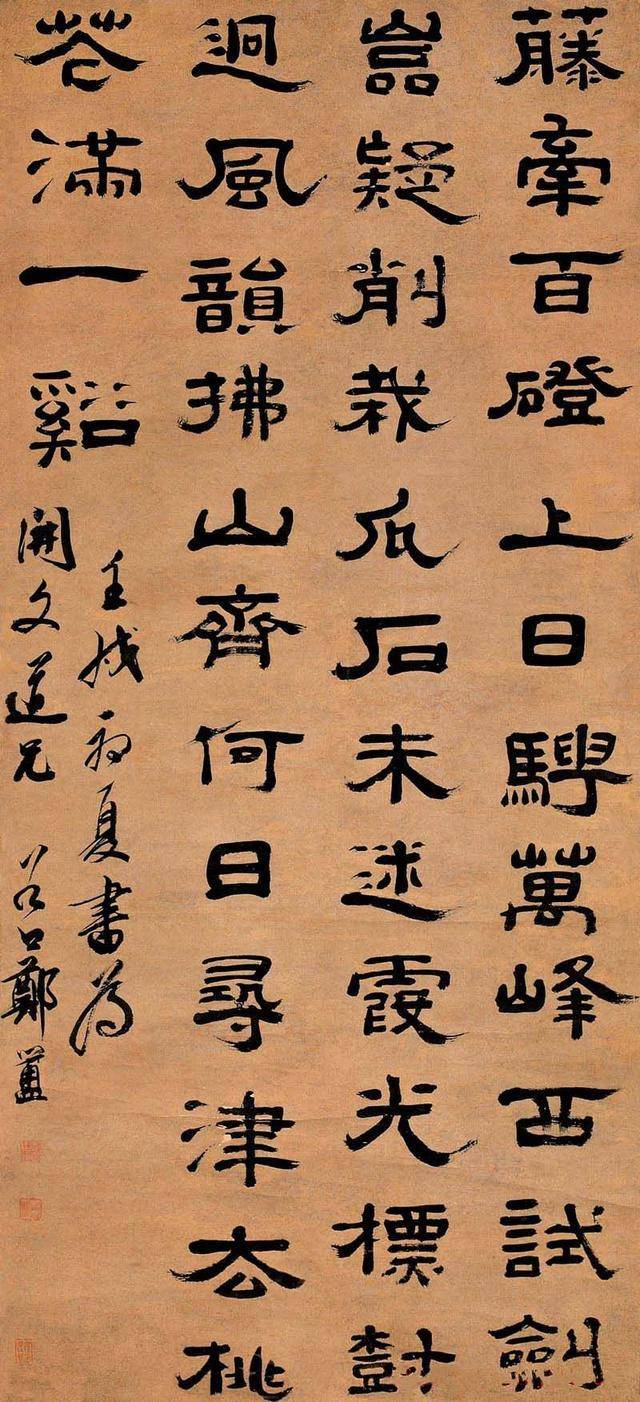 藤牽百磴上日騁萬峰西試劍
嵒疑削栽瓜石未迷霞光標樹
迥風韻拂山齊何日尋津去桃
花滿一谿
壬戌初夏書為
開文道兄 谷口鄭簠